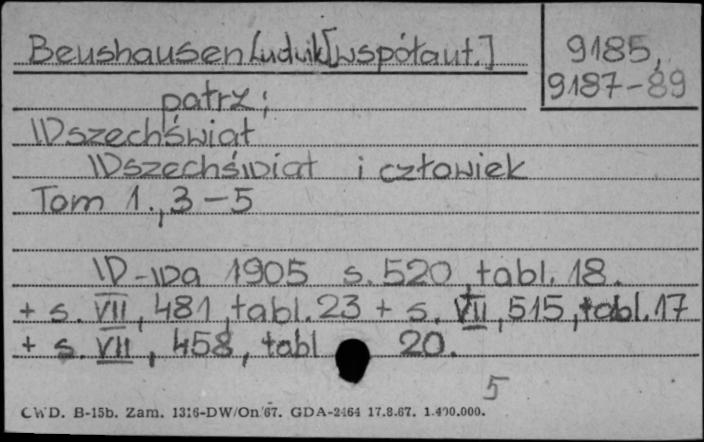 Beushausen Ludwik [współaut.]
9185,
9187-89
patrz;
Wszechświat
Wszechświat i człowiek
Tom 1., 3-5
W-wa 1905 s. 520, tabl. 18.
+ s. VII, 481, tabl. 23 + s. VII, 515, tabl. 17
+ s. VII, 458, tabl 20.
5
CWD. B-15b. Zam. 1316-DW/On/67. GDA-2464 17.8.67. 1.400.000.